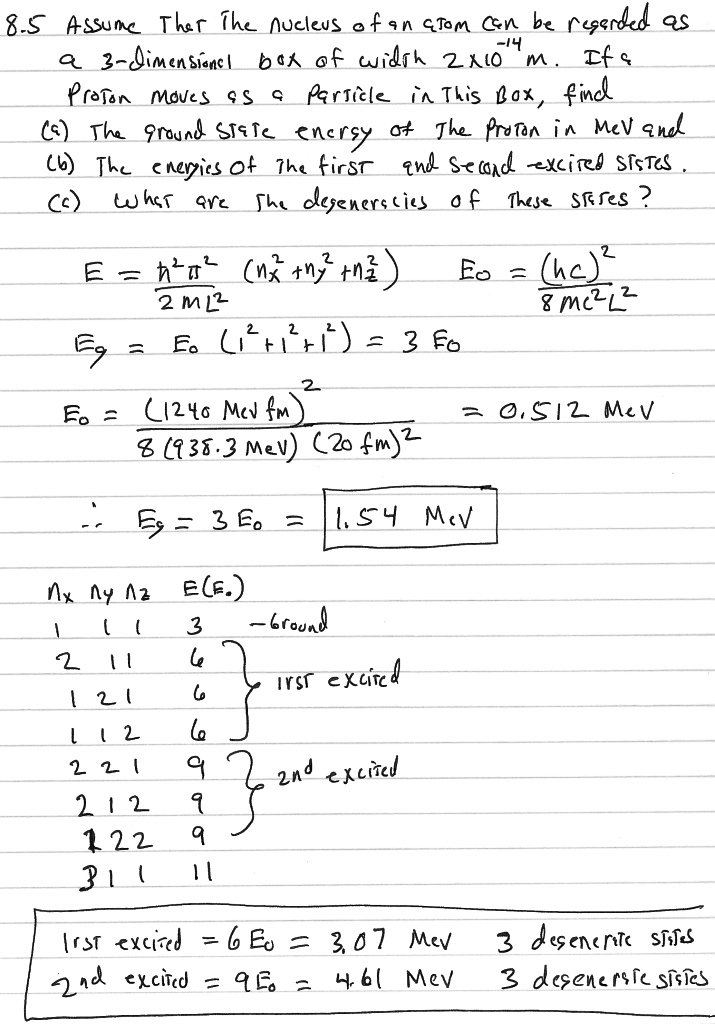 8.5 Assume That The nucleus of an atom can be regarded as
a 3-dimensional box of width 2x10^-14 m. If a
Proton moves as a Particle in This Box, find
(a) The ground state energy of The Proton in MeV and
(b) The energies of The first and second excited states.
(c) What are The degeneracies of These states?
E = ħ²π²/2mL² (nx² + ny² + nz²) E0 = (hc)²/8mc²L²
Eg = E0 (1² + 1² + 1²) = 3 E0
E0 = (1240 MeV fm)²/8 (938.3 MeV) (20 fm)² = 0.512 MeV
∴ Eg = 3 E0 = 1.54 MeV
nx ny nz E(E0)
1 1 1 3 – Ground
2 1 1 6
1 2 1 6 1rst excited
1 1 2 6
2 2 1 9 2nd excited
2 1 2 9
1 2 2 9
3 1 1 11
1rst excited = 6 E0 = 3.07 MeV 3 degenerate states
2nd excited = 9 E0 = 4.61 MeV 3 degenerate states